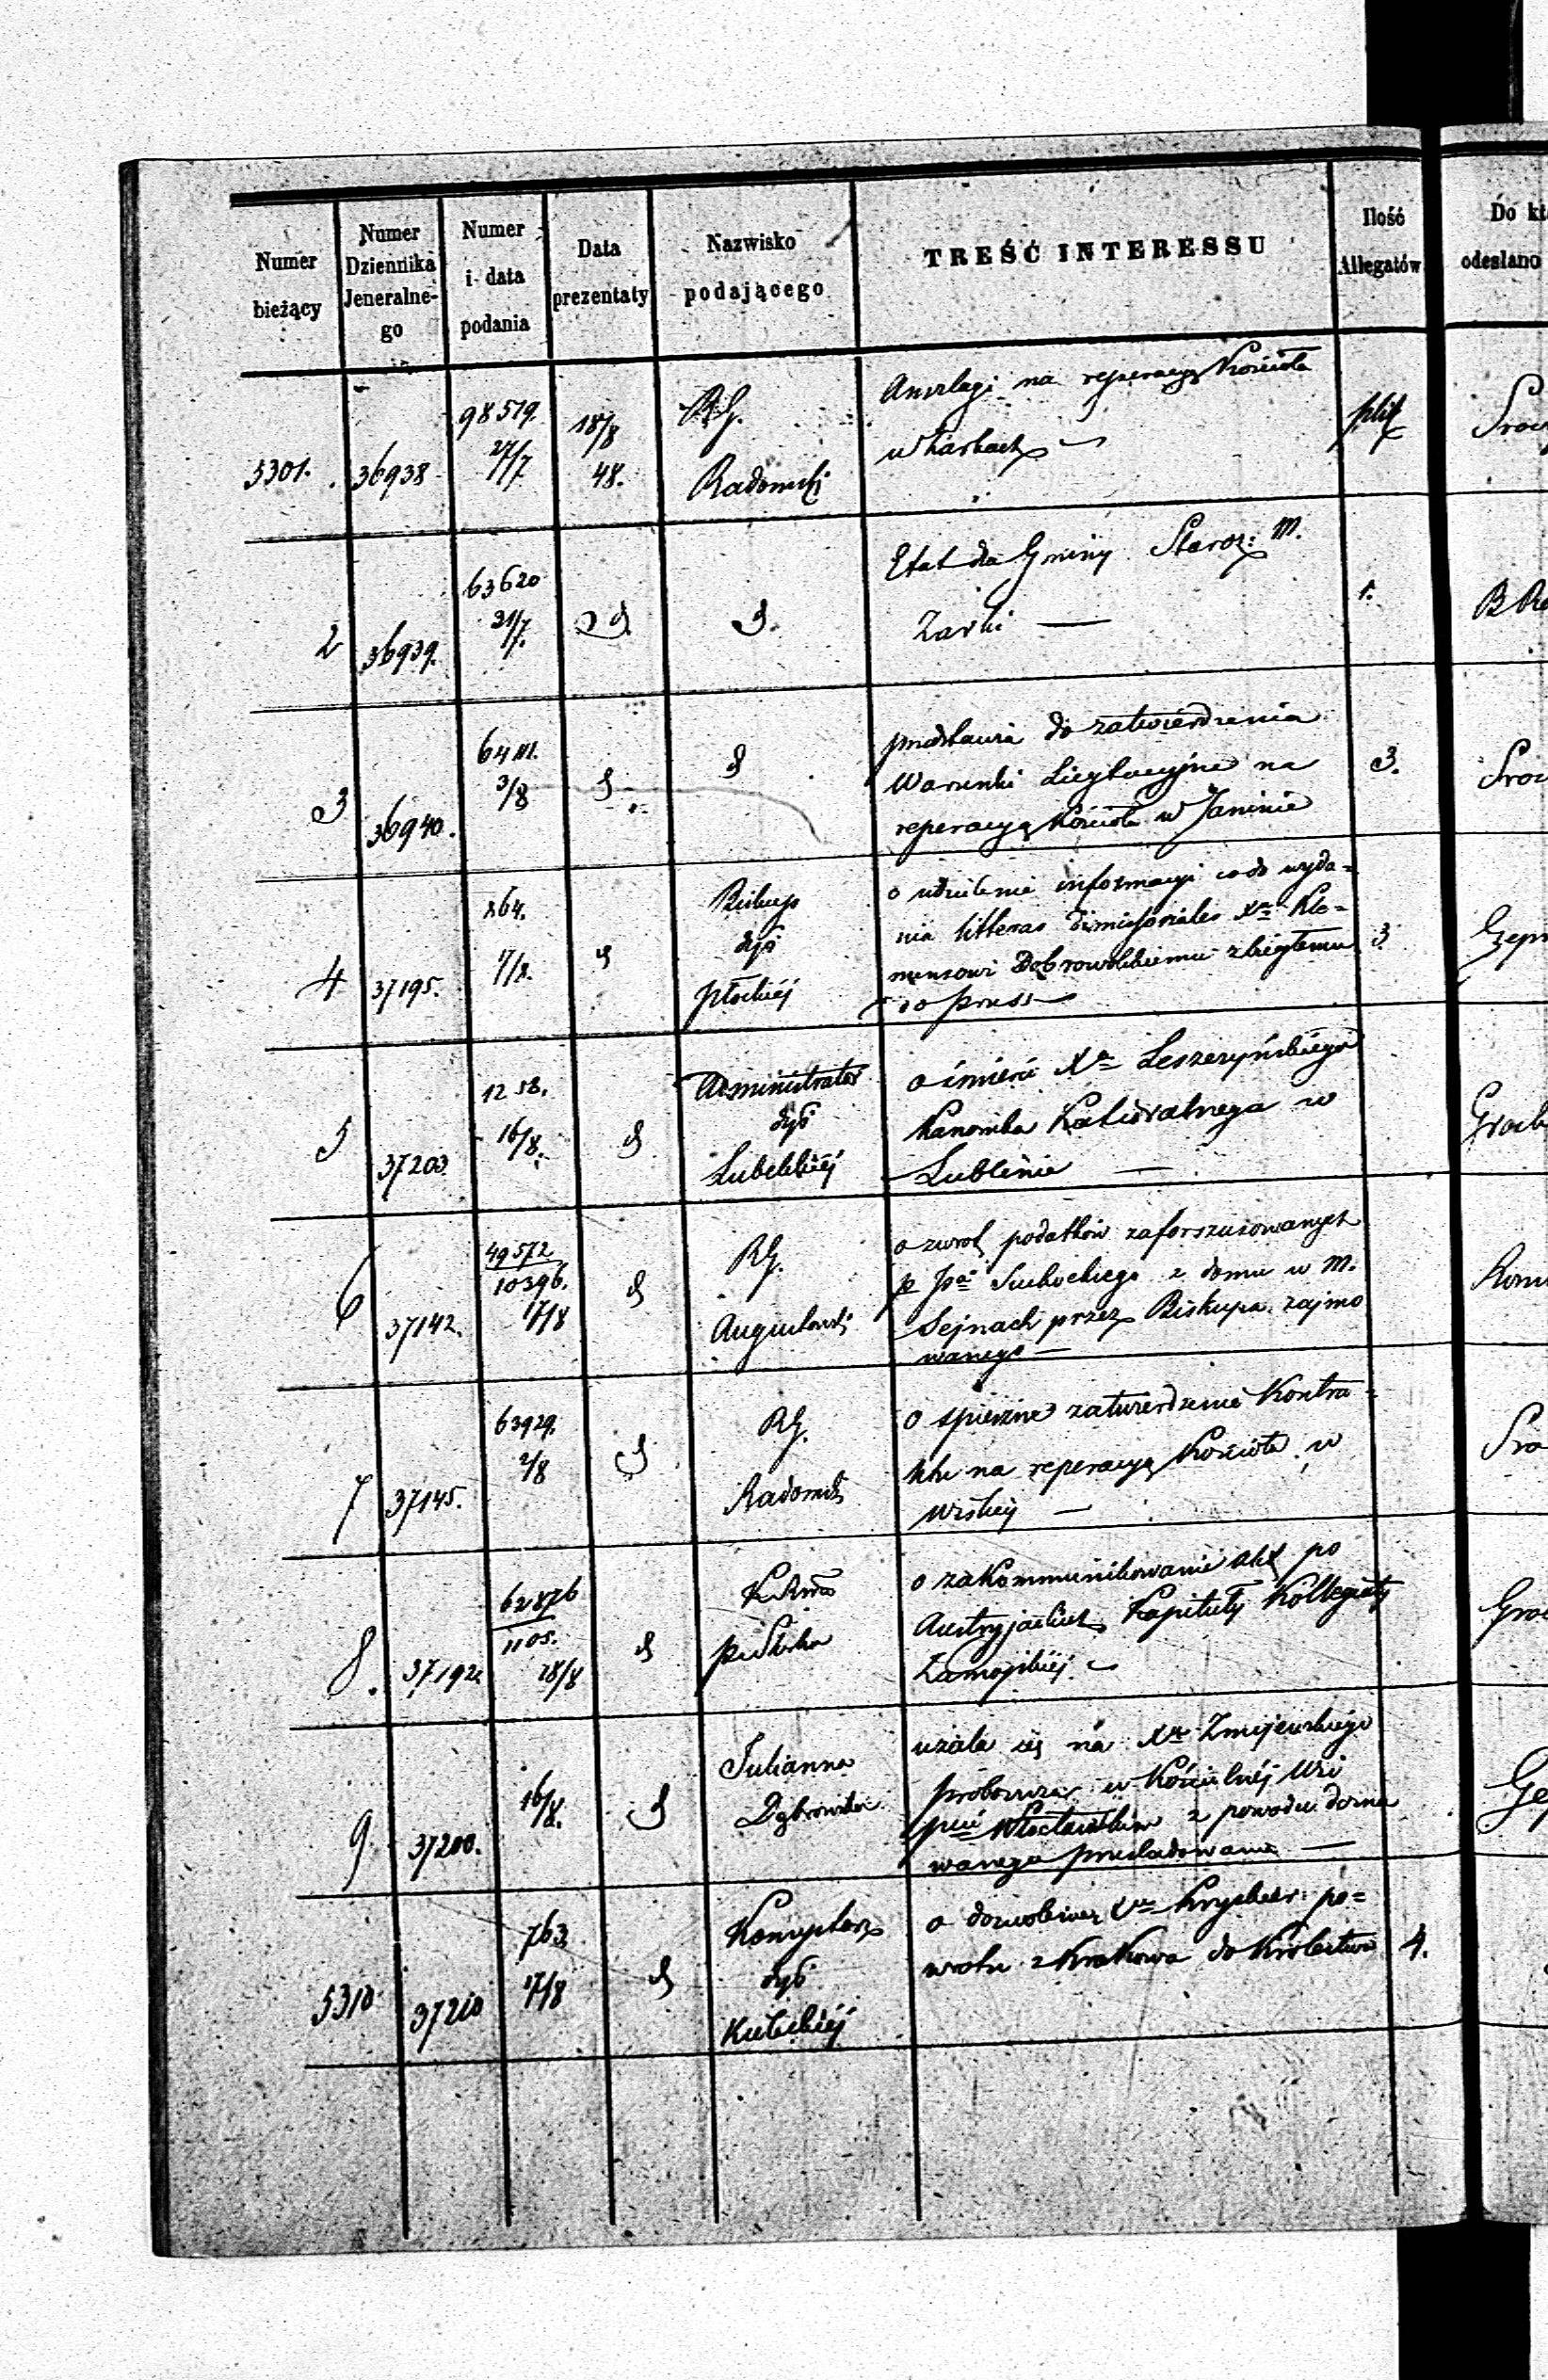 Numer bieżący
Numer Dziennika Jeneralne- go
Numer i data podania
Data prezentaty
Nazwisko podającego
TREŚĆ INTERESSU
Ilość Allegatów
Do kt
odesłano
5301. 36938 98519. 27/7 18/8 48. RG. Radomski
Anszlagi na reperacyą Kościoła
w Żarkach
plik
2 36939. 63620 31/7. d d.
Etat dla Gminy Staroz: M.
Żarki —
1.
3 36940. 64111. 3/8 d d
przedstawia do zatwierdzenia
Warunki Licytacyjne na
reperacyą Kościoła w Janinie
3.
4 37195. 864. d Biskup dyi Płockiéj
o udzielenie informacyi co do wyda=
nia litteras dimissoriales Xu Kle=
mensowi Dobrowolskiemu zbiegłemu
do Pruss —
3
5 37203. 1258. 16/8. d Administrator dyi Lubelskiéj
o śmierci Xa Leszczyńskiego
Kanonika Katedralnego w
Lublinie —
6 37142. 49572 10396. 17/8 d RG. Augustowski
o zwrot podatków zaforszusowanych
p Pa Suchockiego z domu w M.
Sejnach przez Biskupa zajmo
wanego —
7 37145. 63929. 2/8 d RG. Radomski
o spieszne zatwierdzenie Kontra=
ktu na reperacyą Kościoła w
8. 37192. 62876 1105. 18/8 d
o zakommunikowanie akt po
Austryjackich Kapituły Kollegiaty
Zamojskiéj
9 37200. 16/8. d Julianna Dąbrowska
użala się na Xa Zmijewskiego
proboszcza w Kościelnéj Wsi
pcie Włocławskim z powodu dozna
wanego prześladowania —
5310 37210 763 17/8 d Konsystorz dyi Kieleckiéj
o dozwolenie Xu po=
wrotu z Krakowa do Królestwa
4.